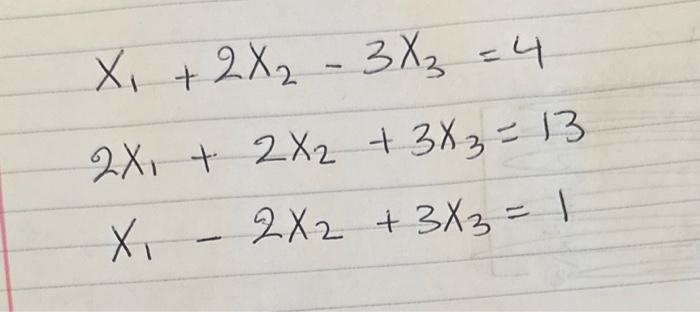 x₁ + 2x₂ - 3x₃ = 4
2x₁ + 2x₂ + 3x₃ = 13
x₁ - 2x₂ + 3x₃ = 1